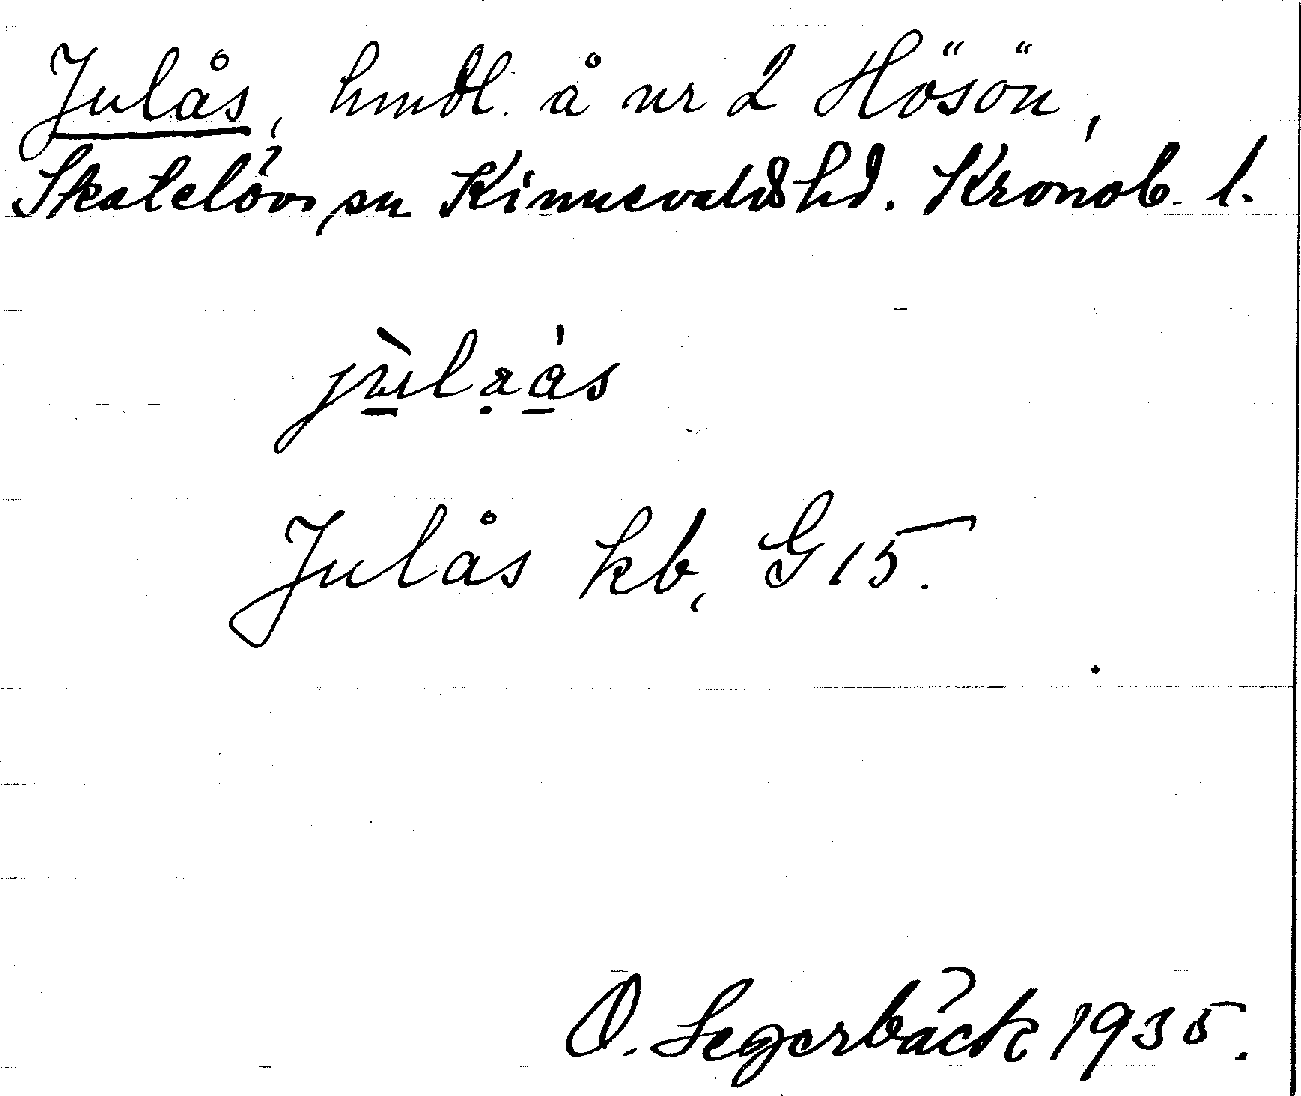 Julås, hmdl. å nr 2 Hösön,
Skatelövs sn Kinnevalds hd. Kronob. l.
jùlaás
Julås kb, G 15.
O. Segerbäck 1935.